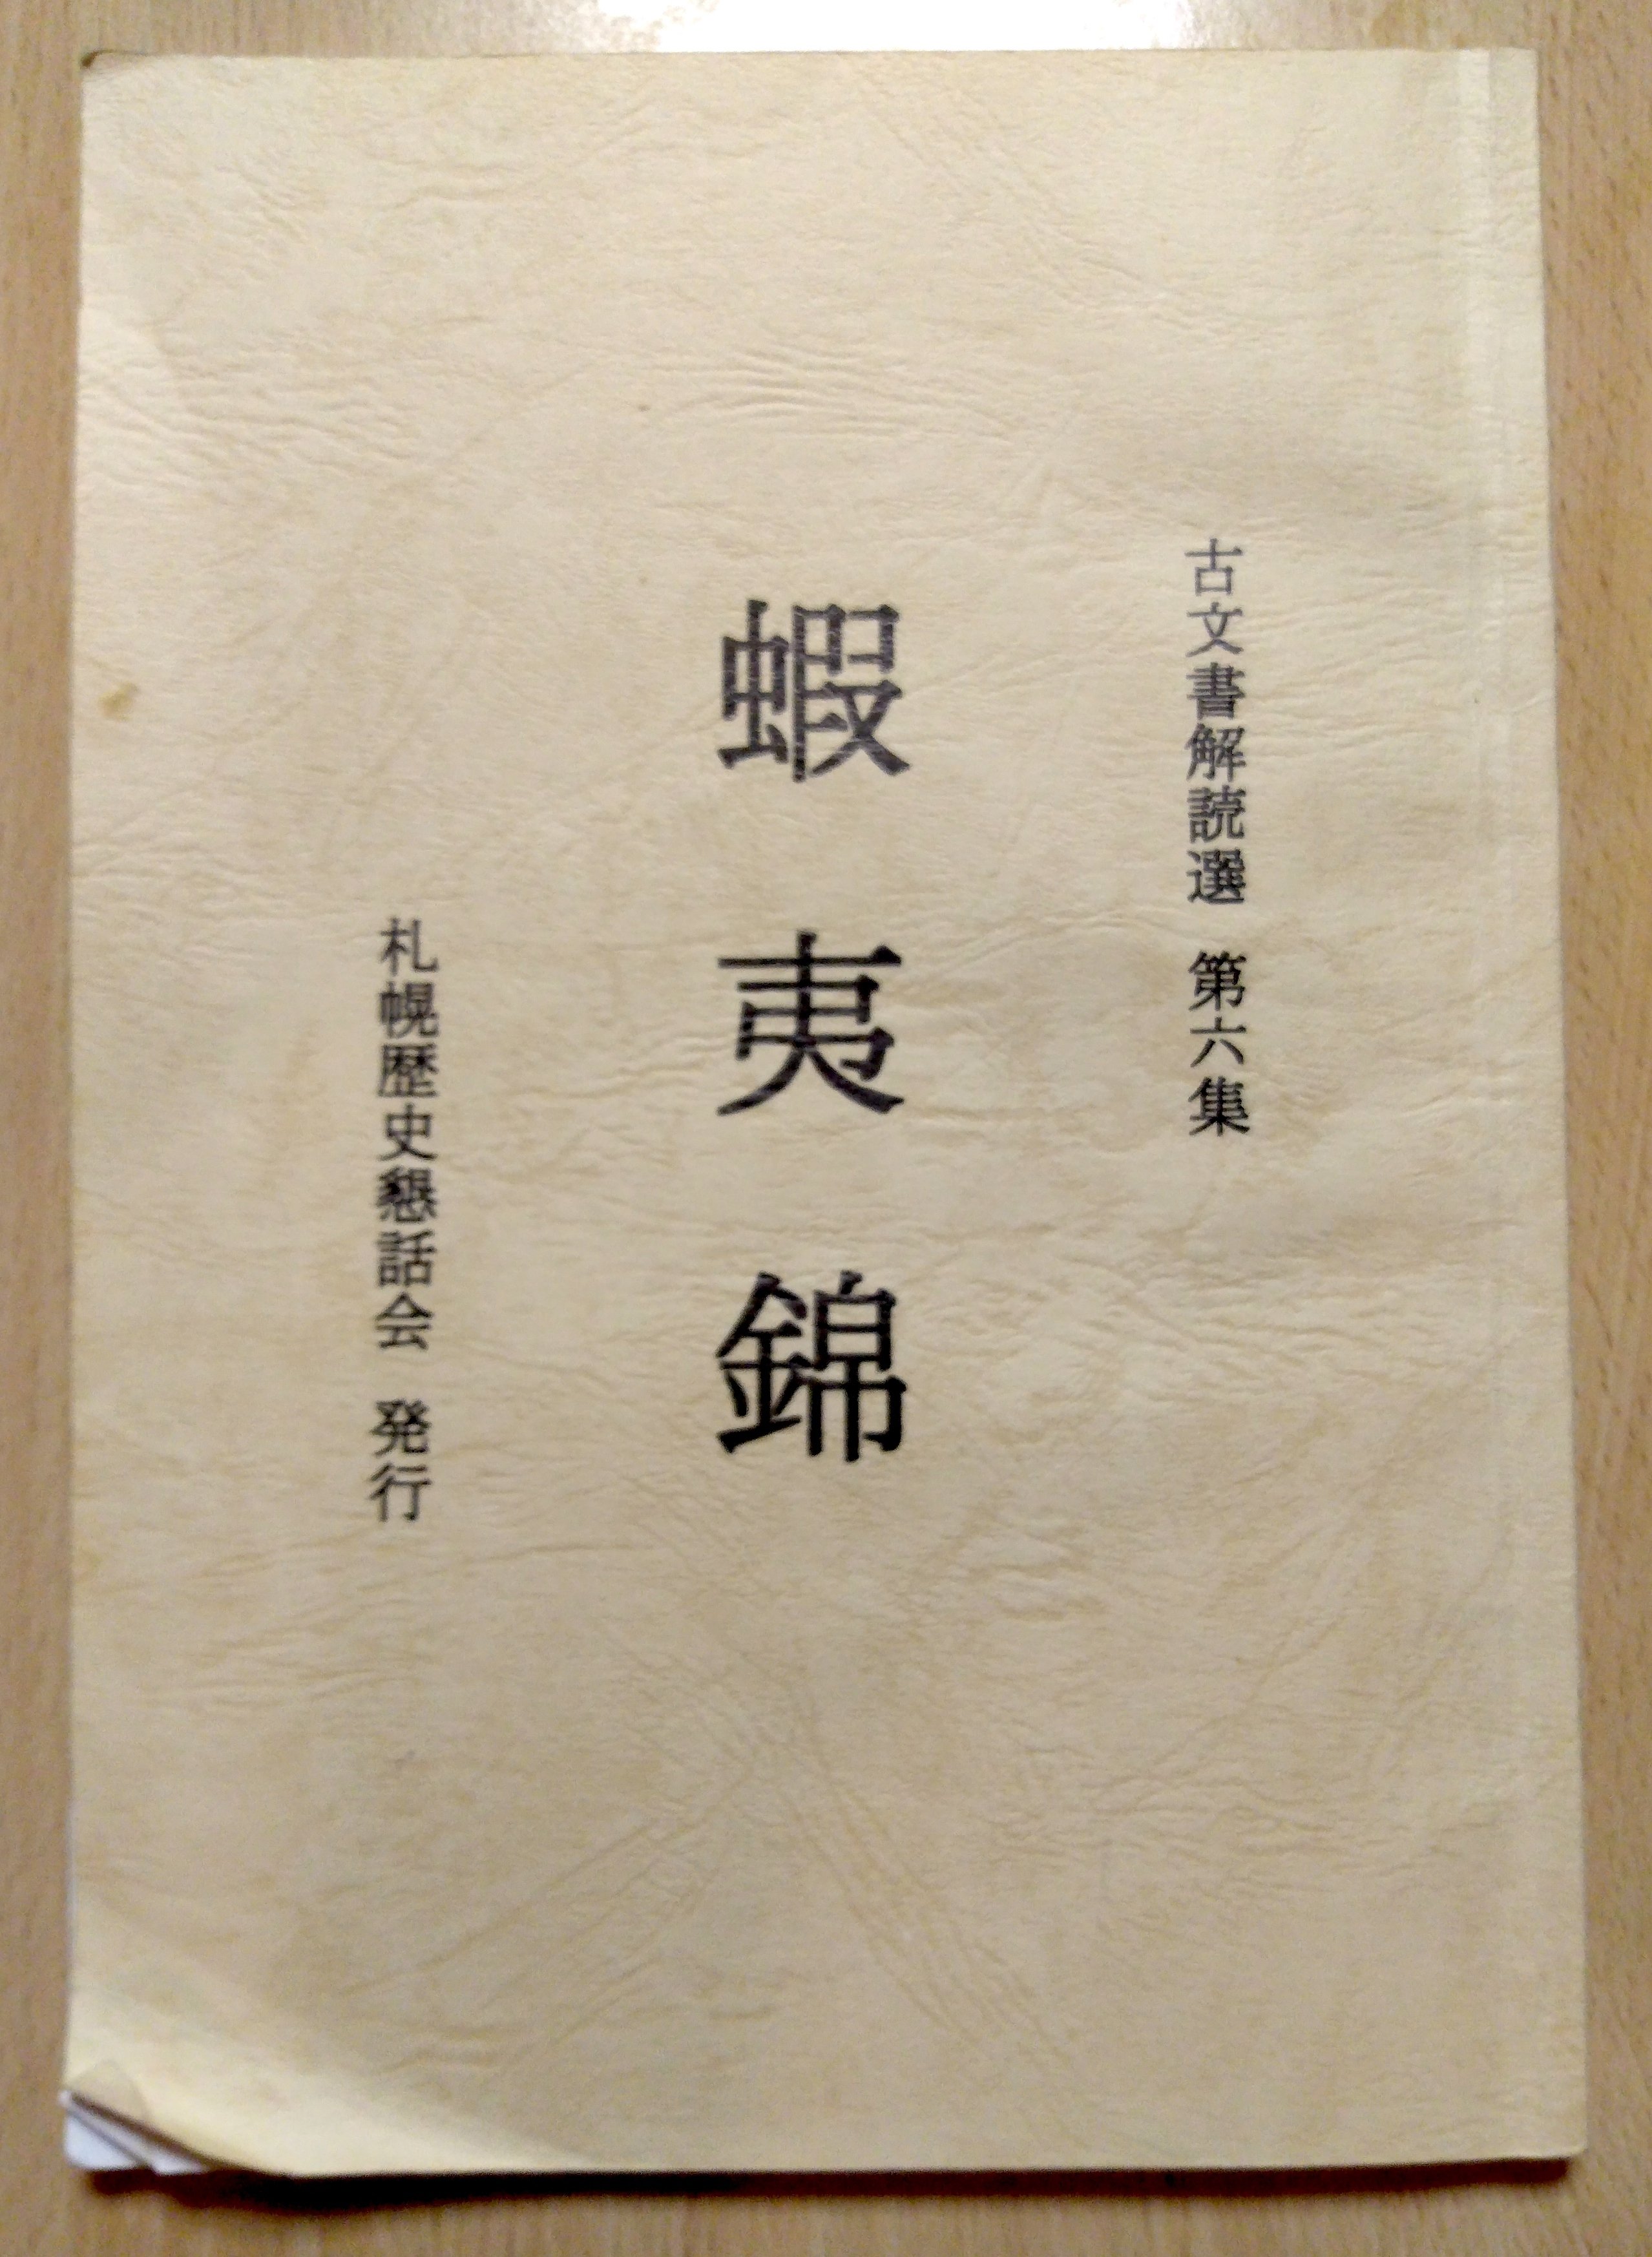 古文書解読選　第六集
蝦夷錦
札幌歴史懇話会　発行